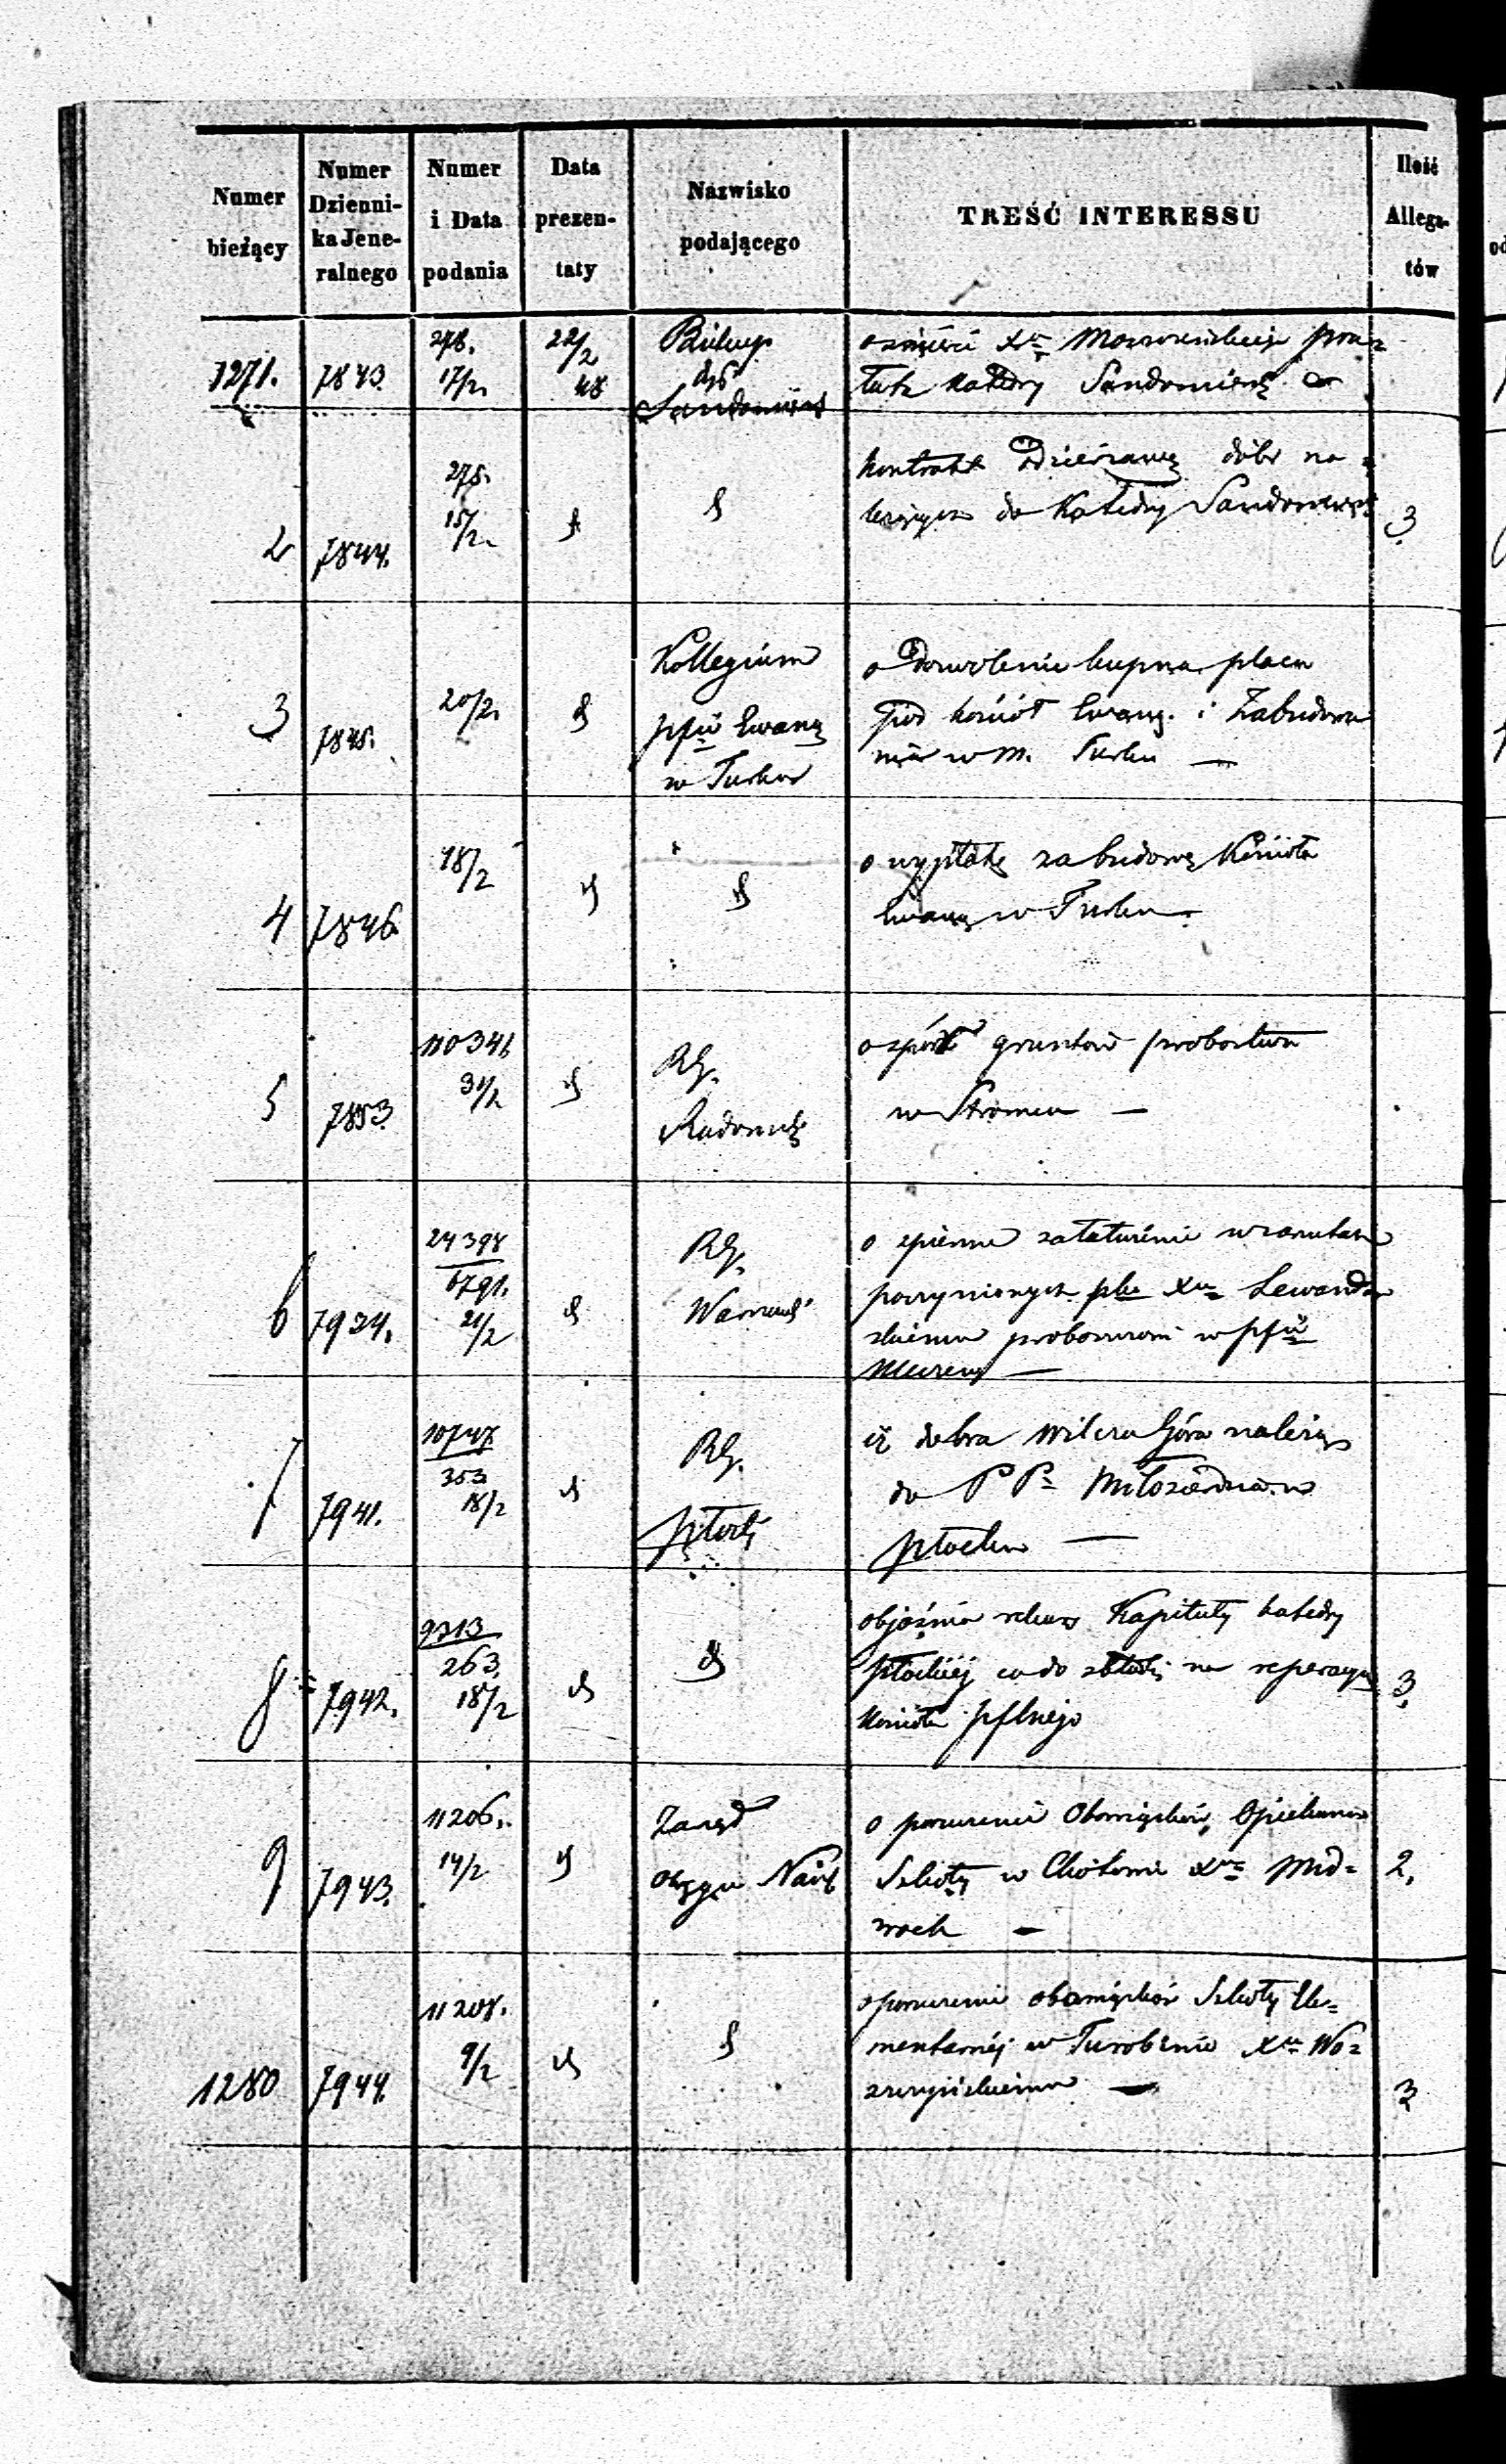 Numer bieżący
Numer Dzienni-ka Jene-ralnego
Numer i Data podania
Data prezen-taty
Nazwisko podającego
TREŚĆ INTERESSU
Ilość Allega-tów
1271. 7843 278. 17/2. 22/2 48 Biskup
o śmierci Xa pra=
łata Katedry Sandomiersk
2 7844. 275. 15/2.
kontrakt Dzierżawy dóbr na=
leżących do Katedry Sandomiersk 3.
3 7845. 20/2. Kollegium
pfii Ewang
w Turku
o Dozwolenie kupna placu
pod kościół Ewang. i Zabudowa
nia w m. Turku —
4 7846 18/2
o wypłatę za budowę Kościoła
Ewang w Turku.
5 7853. 31/2 RG.
Radomsk
o gruntów probostwa
w Stromcu —
6 7934. 24398
6791.
21/2 RG.
Warszaws
o załatwienie
poczynionych Xu Lewando
skiemu proboszczowi w pfii
—
7 7941. 10747
353
18/2 RG.
Płocki
iż dobra Wilcza Góra należą
do P P. Miłosierdzia w
Płocku —
8 7942. 9313
263.
18/2
objaśnia rekurs Kapituły katedry
Płockiej co do składki na reperacyą
Kościoła pflnego 3.
9 7943. 11206.
14/2 Zarząd
Okręgu Nauk
o poruczenie Obowiązków Opiekuna
Szkoły w Xu 2.
—
1280 7944. 11208.
9/2
o poruczenie obowiązków Szkoły Ele=
mentarnéj w Turobinie Xu Wo=
—
3